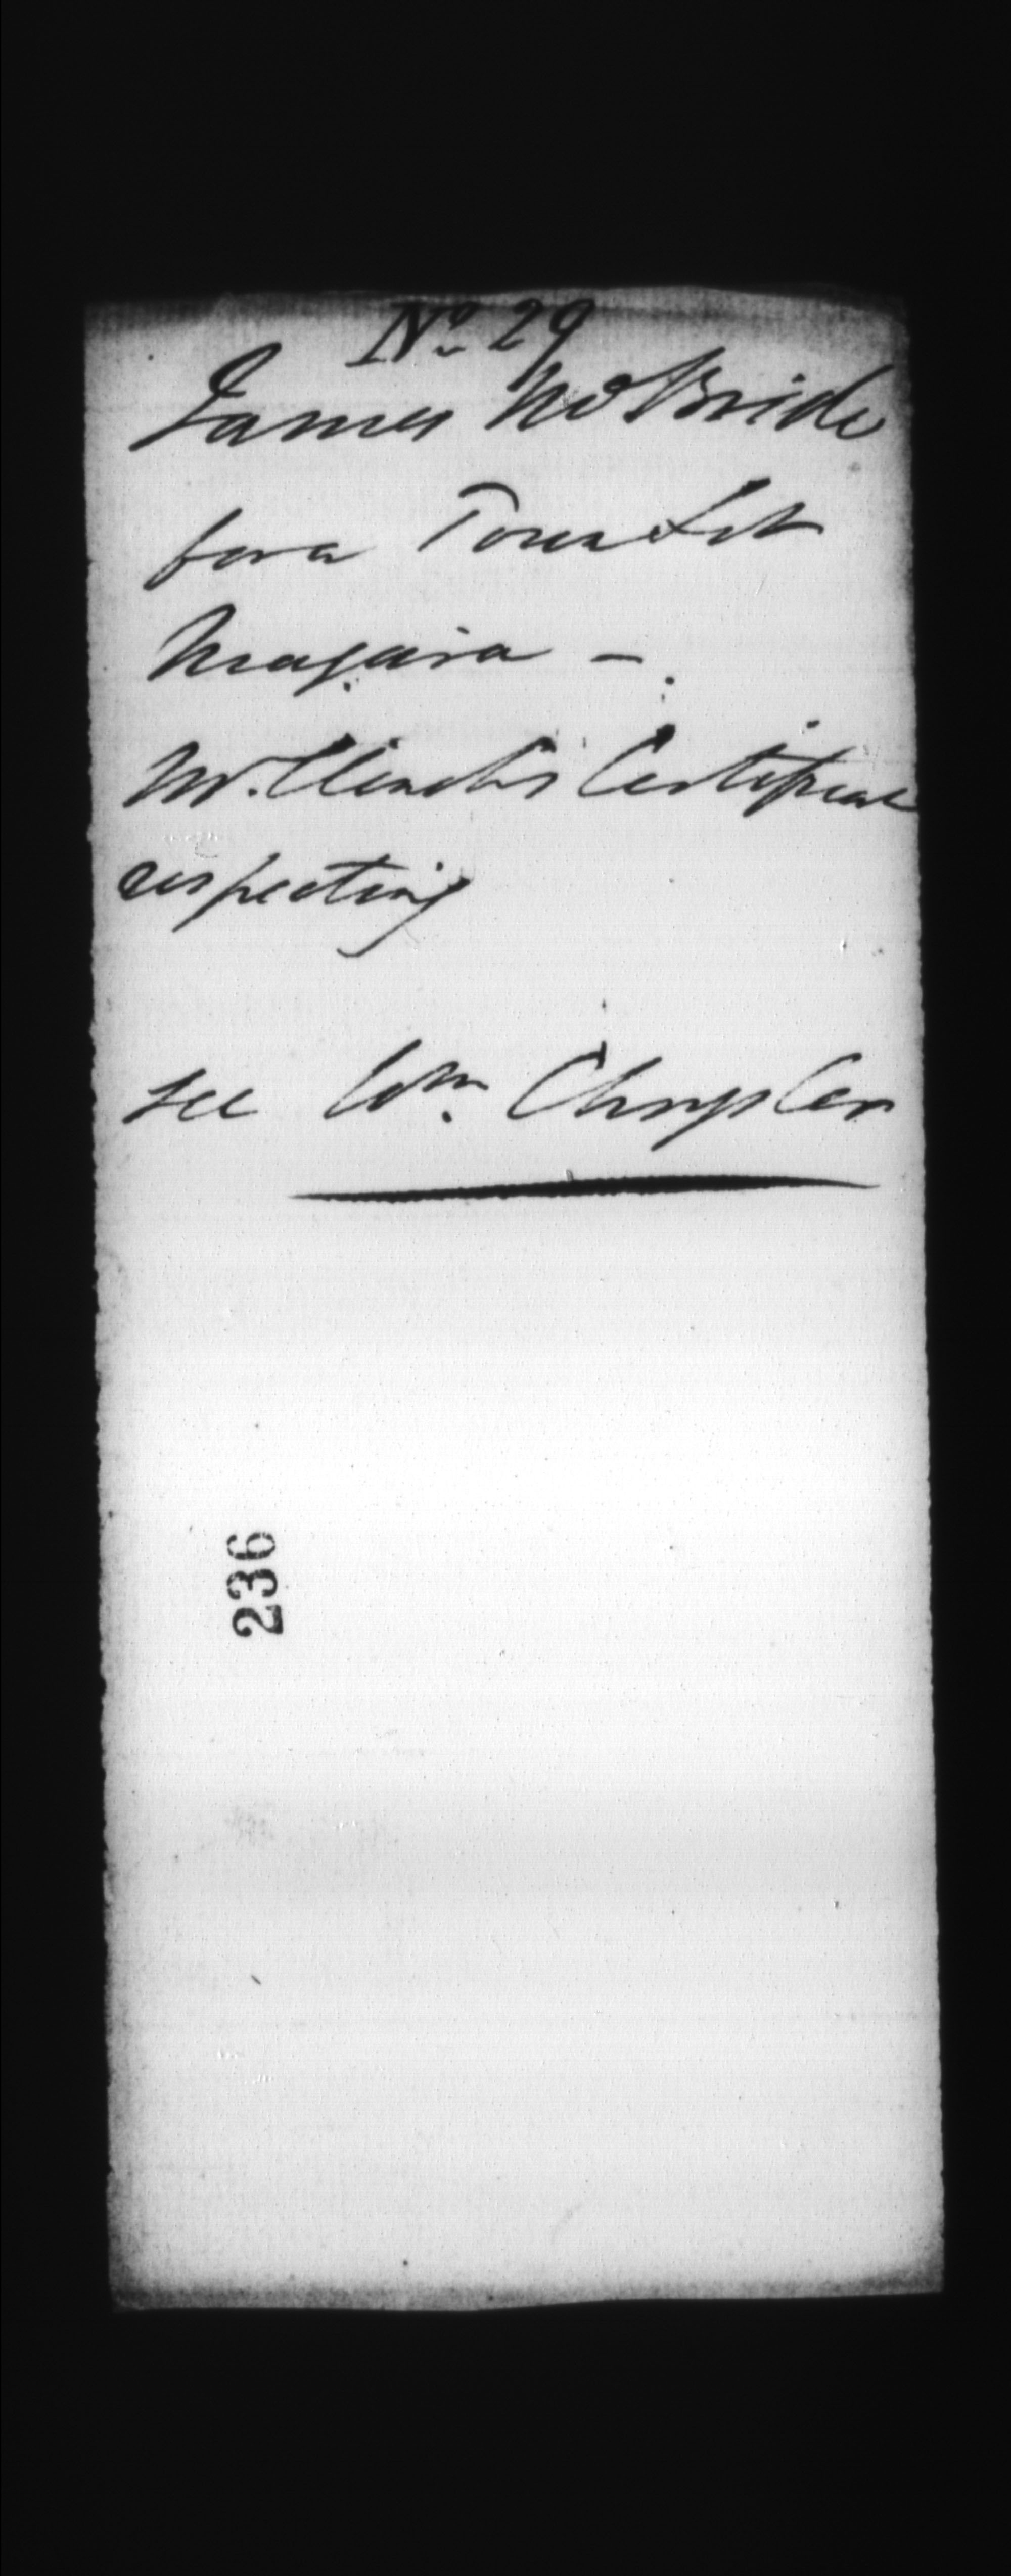 No. 29
James McBride
for a Town Lot
Niagara -.
Mr. Clench's Certificate
respecting
see Wm. Chrysler
236